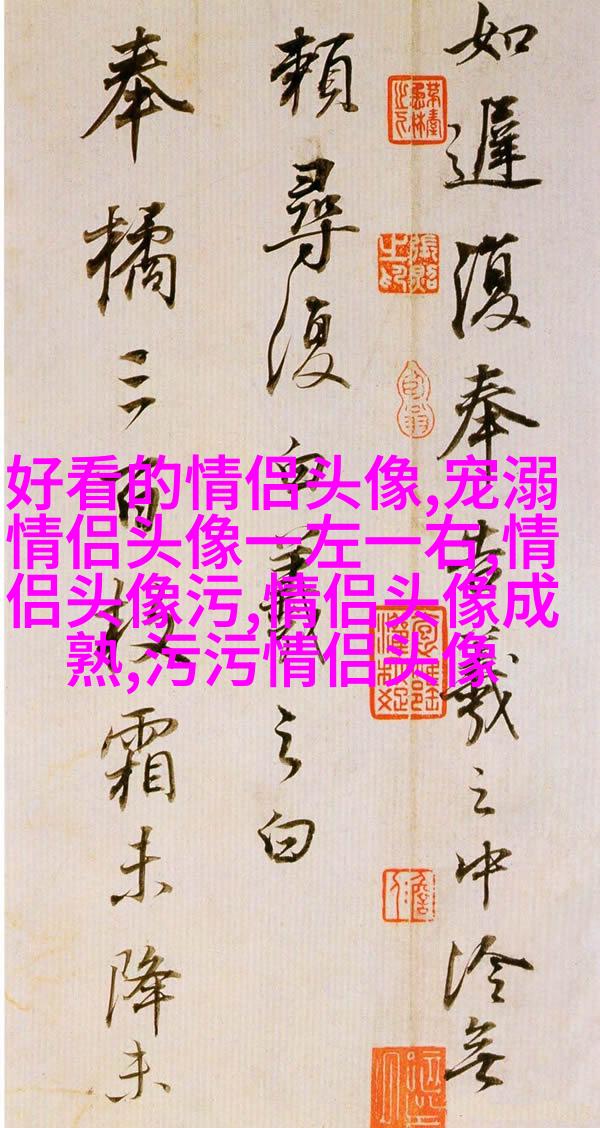 如遲復奉告羲之中冷無
賴尋復白羲之白
奉橘三百枚霜未降未
好看的情侣头像,宠溺
情侣头像一左一右,情
侣头像污,情侣头像成
熟,污污情侣头像